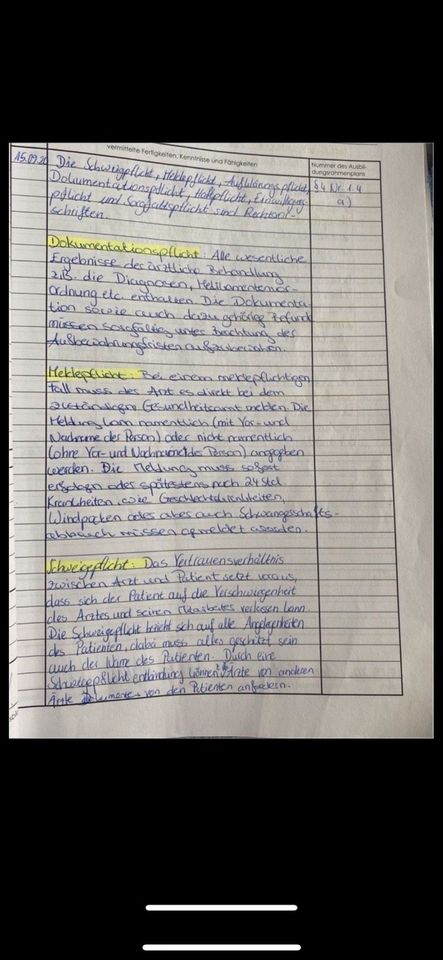 Vermittelte Fertigkeiten, Kenntnisse und Fähigkeiten
Nummer des Ausbil-
dungsrahmenplans
15.09.20 Die Schweigepflicht, Meldepflicht, Aufklärungspflicht,
Dokumentationspflicht, Haftpflicht, Einwilligungs-
pflicht und Sorgfaltspflicht sind Rechtsvor-
schriften.
§4 Nr. 1.4
a)
Dokumentationspflicht: Alle wesentliche
Ergebnisse der ärztliche Behandlung
z.B. die Diagnosen, Medikamentenver-
ordnung etc. enthalten. Die Dokumenta-
tion sowie auch dazu gehörige Befunde
müssen sorgfältig unter Beachtung der
Aufbewahrungsfristen aufzubewahren.
Meldepflicht: Bei einem meldepflichtigen
fall muss der Arzt es direkt bei dem
zuständigen Gesundheitsamt melden. Die
Meldung kann namentlich (mit Vor- und
Nachname der Person) oder nicht namentlich
(ohne Vor- und Nachname des Person) angegeben
werden. Die Meldung muss sofort
erfolgen oder spätestens nach 24 Std.
Krankheiten, wie Geschlechtskrankheiten,
Windpocken oder aber auch Schwangerschafts-
abbruch müssen gemeldet werden.
Schweigepflicht: Das Vertrauensverhältnis
zwischen Arzt und Patient setzt voraus,
dass sich der Patient auf die Verschwiegenheit
des Arztes und seinen Mitarbeiter verlassen kann.
Die Schweigepflicht bezieht sich auf alle Angelegenheiten
des Patienten, dabei muss alles geschützt sein
auch der Name des Patienten. Durch eine
Schweigepflichtentbindung können Ärzte von anderen
Ärzte Dokumente von den Patienten anfordern.